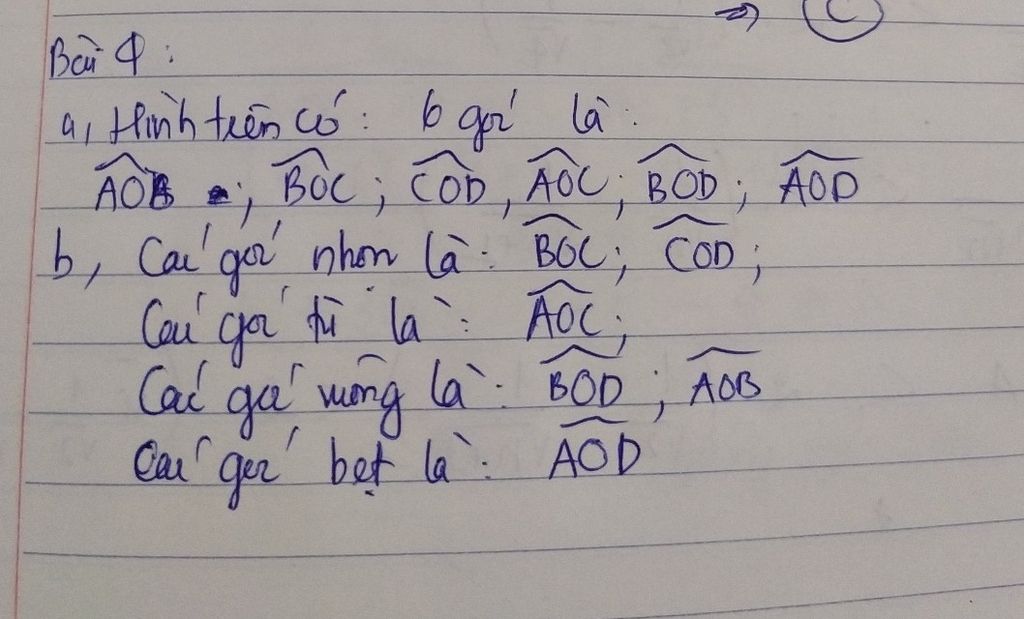 ⇒ C
Bài 4:
a, Hình trên có: 6 góc là:
AOB; BOC; COD, AOC; BOD; AOD
b, Các góc nhọn là: BOC; COD;
Các góc tù là: AOC;
Các góc vuông là: BOD; AOB
Các góc bẹt là: AOD